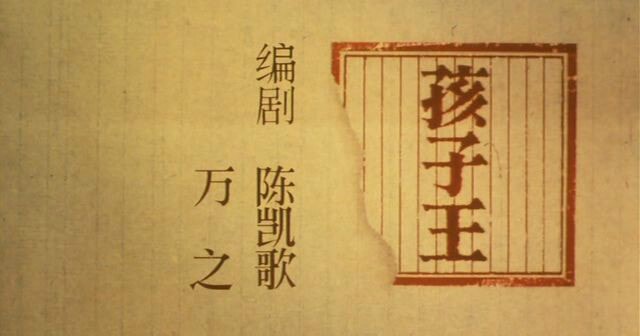 孩子王
编剧
陈凯歌
万之